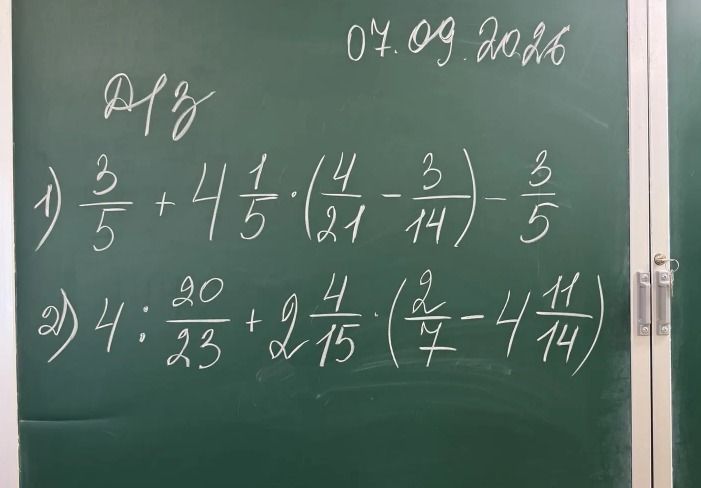 07.09.2026
Д/з
1) 3/5 + 4 1/5 · (4/21 - 3/14) - 3/5
2) 4 : 20/23 + 2 4/15 · (2/7 - 4 11/14)